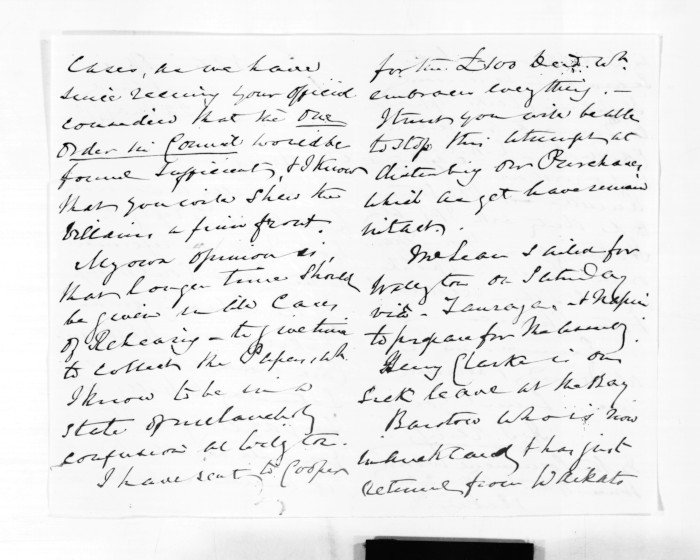 Cases, as we have
since receiving your official
considered that the one
Order in Council would be
found sufficient, & I know
that you will shew the
Villains a firm front.
My own opinion is,
that longer time should
be given in like Cases
of Rehearing – to give time
to collect the Papers, wh
I know to be in a
state of melancholy
confusion at Welgton.
I have sent to Cooper
for the £100 Deed wh.
embraces everything. –
I trust you will be able
to stop this attempt at
disturbing our Purchases,
which as yet have remain
intact.
McLean sailed for
Wellington on Saturday
viâ – Tauranga – & Napier
to prepare for the Assembly.
Henry Clarke is on
Sick leave at the Bay
Barstow who is now
in Auckland, & has just
returned from Waikato